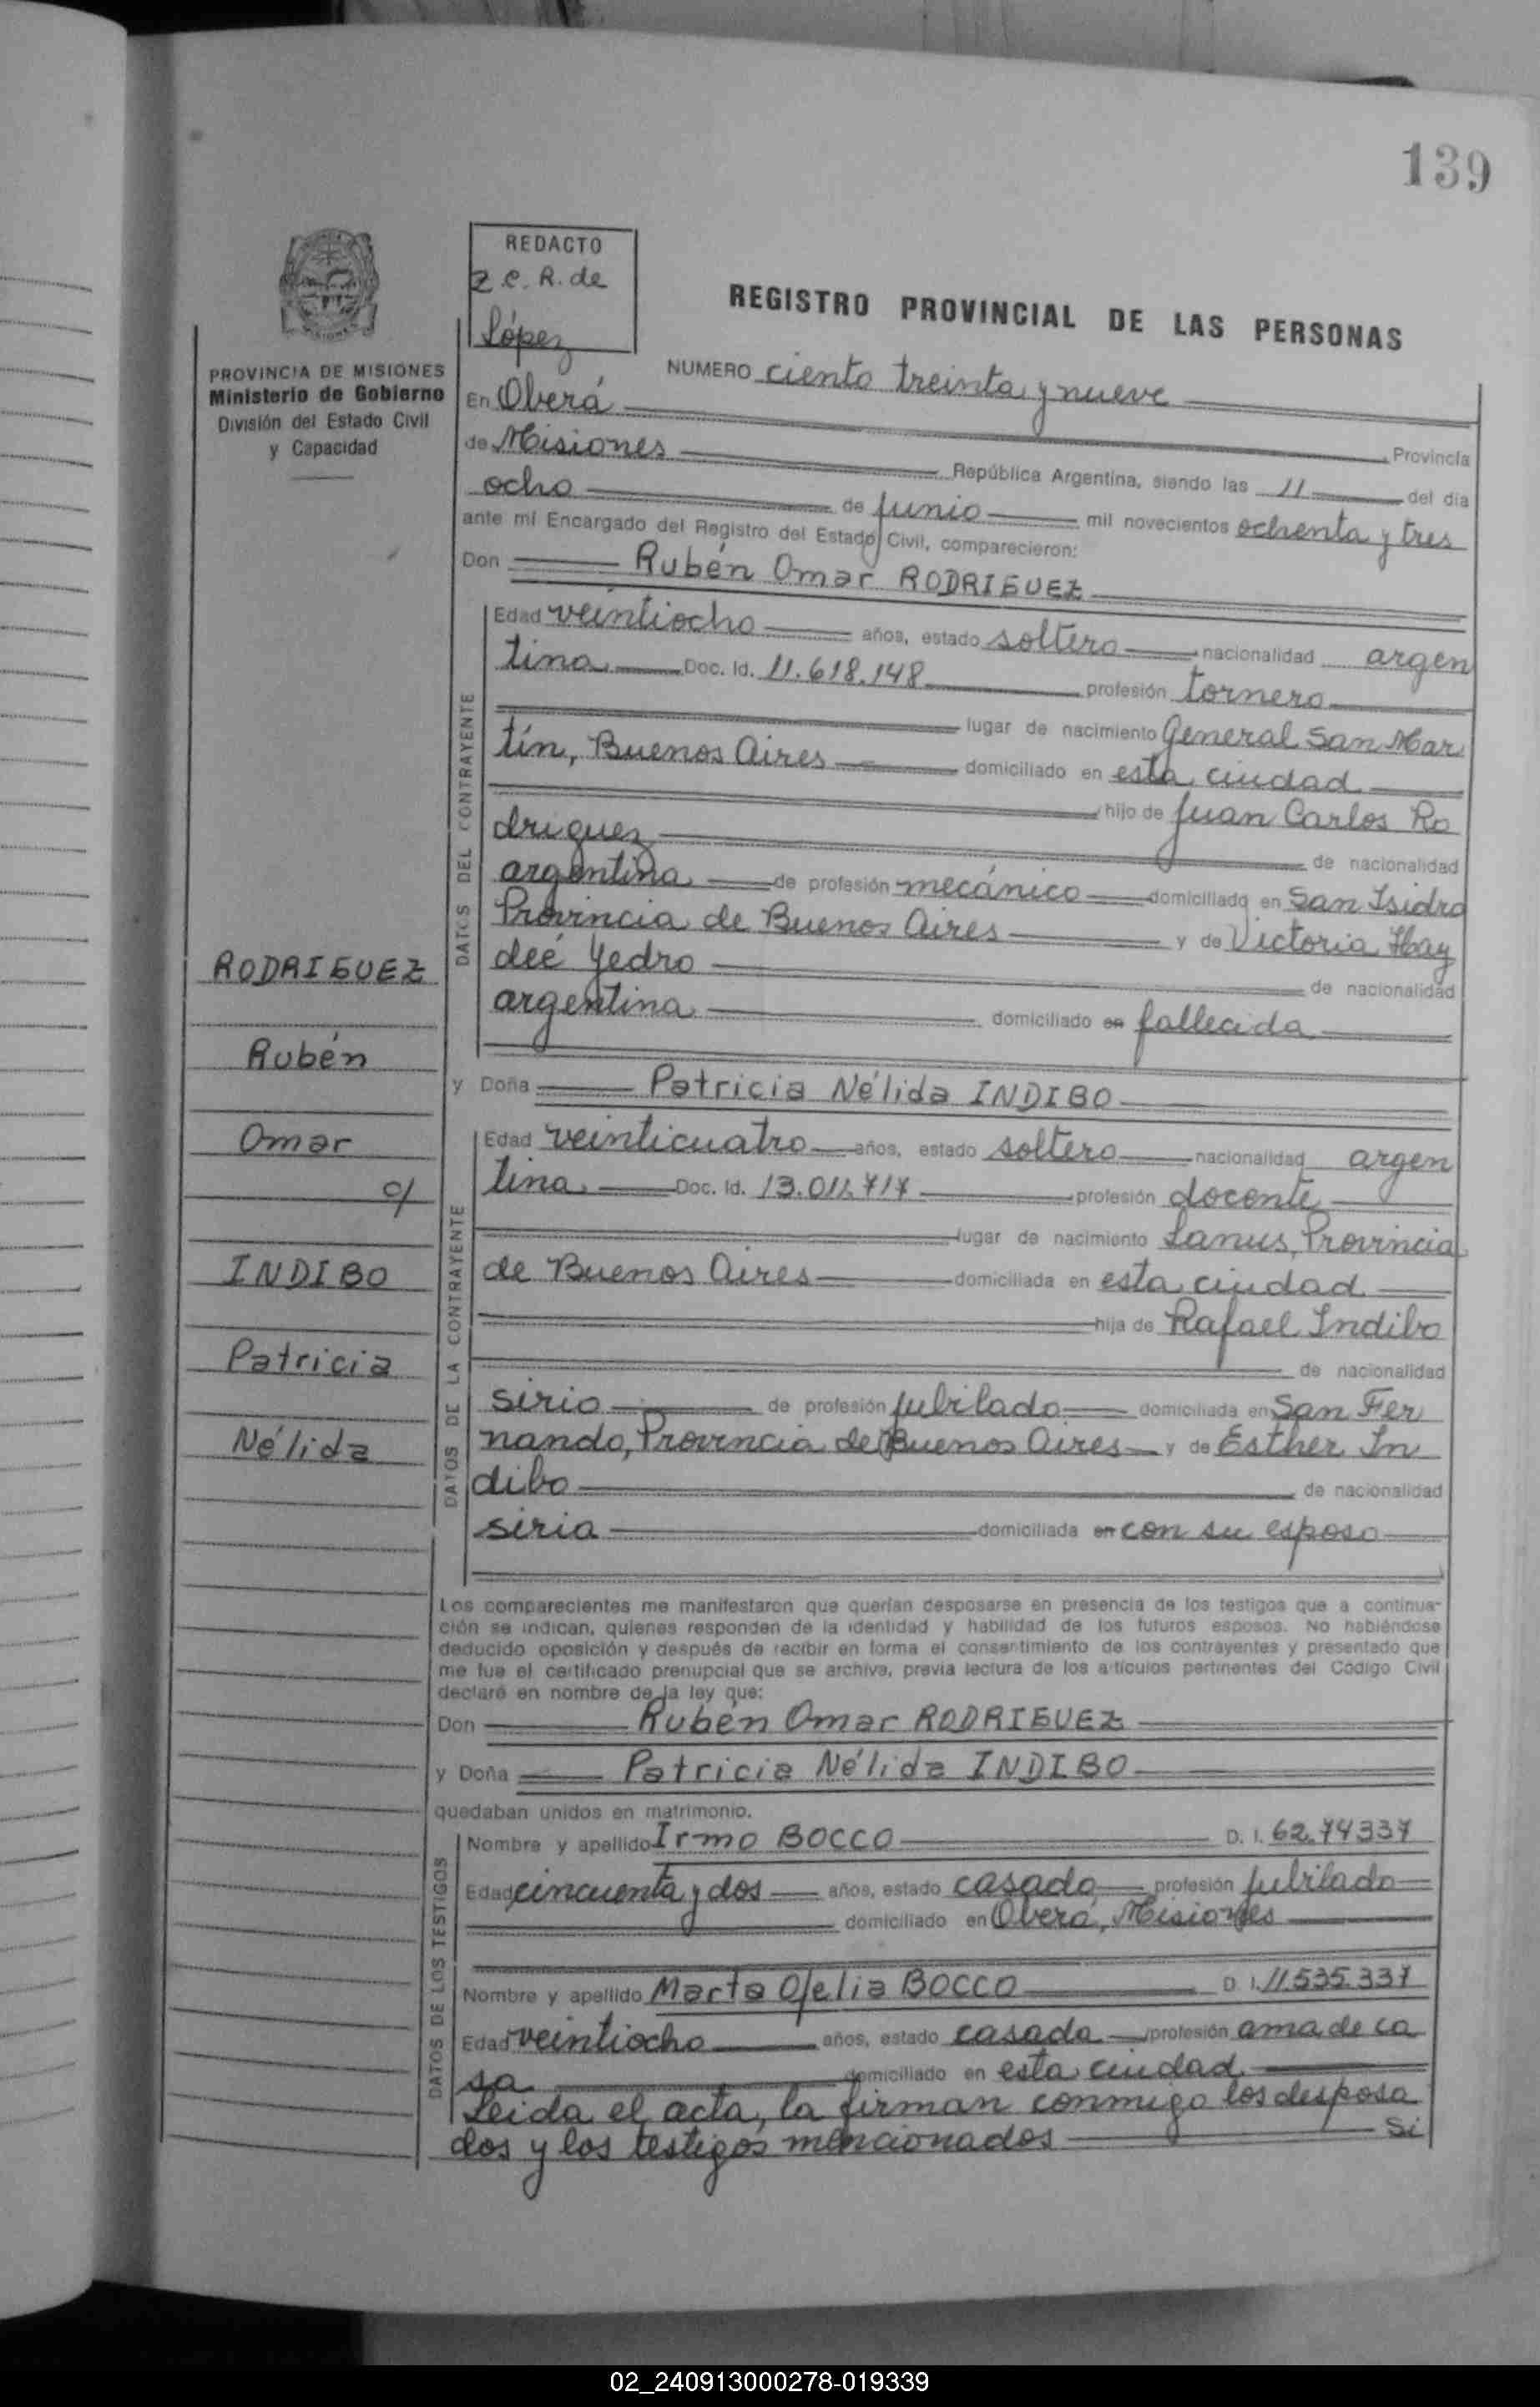 139
REDACTO
Z. C. R. de
López
REGISTRO PROVINCIAL DE LAS PERSONAS
PROVINCIA DE MISIONES
Ministerio de Gobierno
División del Estado Civil
y Capacidad
NUMERO ciento treinta y nueve
En Oberá Provincia
de Misiones República Argentina, siendo las 11 del día
ocho de Junio mil novecientos ochenta y tres
ante mí Encargado del Registro del Estado Civil, comparecieron:
Don Rubén Omar RODRIGUEZ
DATOS DEL CONTRAYENTE
Edad veintiocho años, estado soltero nacionalidad argen
tina Doc. Id. 11.618.148 profesión tornero
lugar de nacimiento General San Mar
tín, Buenos Aires domiciliado en esta ciudad
hijo de Juan Carlos Ro
driguez de nacionalidad
argentina de profesión mecánico domiciliado en San Isidro
Provincia de Buenos Aires y de Victoria Hay
deé Yedro de nacionalidad
argentina domiciliado en fallecida
RODRIGUEZ
Rubén
Omar
c/
INDIBO
Patricia
Nélida
y Doña Patricia Nélida INDIBO
DATOS DE LA CONTRAYENTE
Edad veinticuatro años, estado soltero nacionalidad argen
tina Doc. Id. profesión docente
lugar de nacimiento Lanus, Provincia
de Buenos Aires domiciliada en esta ciudad
hija de Rafael Indibo
de nacionalidad
sirio de profesión jubilado domiciliada en San Fer
nando, Provincia de Buenos Aires y de Esther In
dibo de nacionalidad
siria domiciliada en con su esposo
Los comparecientes me manifestaron que querían desposarse en presencia de los testigos que a continua-
ción se indican, quienes responden de la identidad y habilidad de los futuros esposos. No habiéndose
deducido oposición y después de recibir en forma el consentimiento de los contrayentes y presentado que
me fue el certificado prenupcial que se archiva, previa lectura de los artículos pertinentes del Código Civil
declaré en nombre de la ley que:
Don Rubén Omar RODRIGUEZ
y Doña Patricia Nélida INDIBO
quedaban unidos en matrimonio.
DATOS DE LOS TESTIGOS
Nombre y apellido Irmo BOCCO D. I. 62.74337
Edad cincuenta y dos años, estado casado profesión jubilado
domiciliado en Oberá, Misiones
Nombre y apellido Marta Ofelia BOCCO D. I. 11.535.337
Edad veintiocho años, estado casada profesión ama de ca
sa domiciliado en esta ciudad
Leida el acta, la firman conmigo los desposa
dos y los testigos mencionados Si
02_240913000278-019339